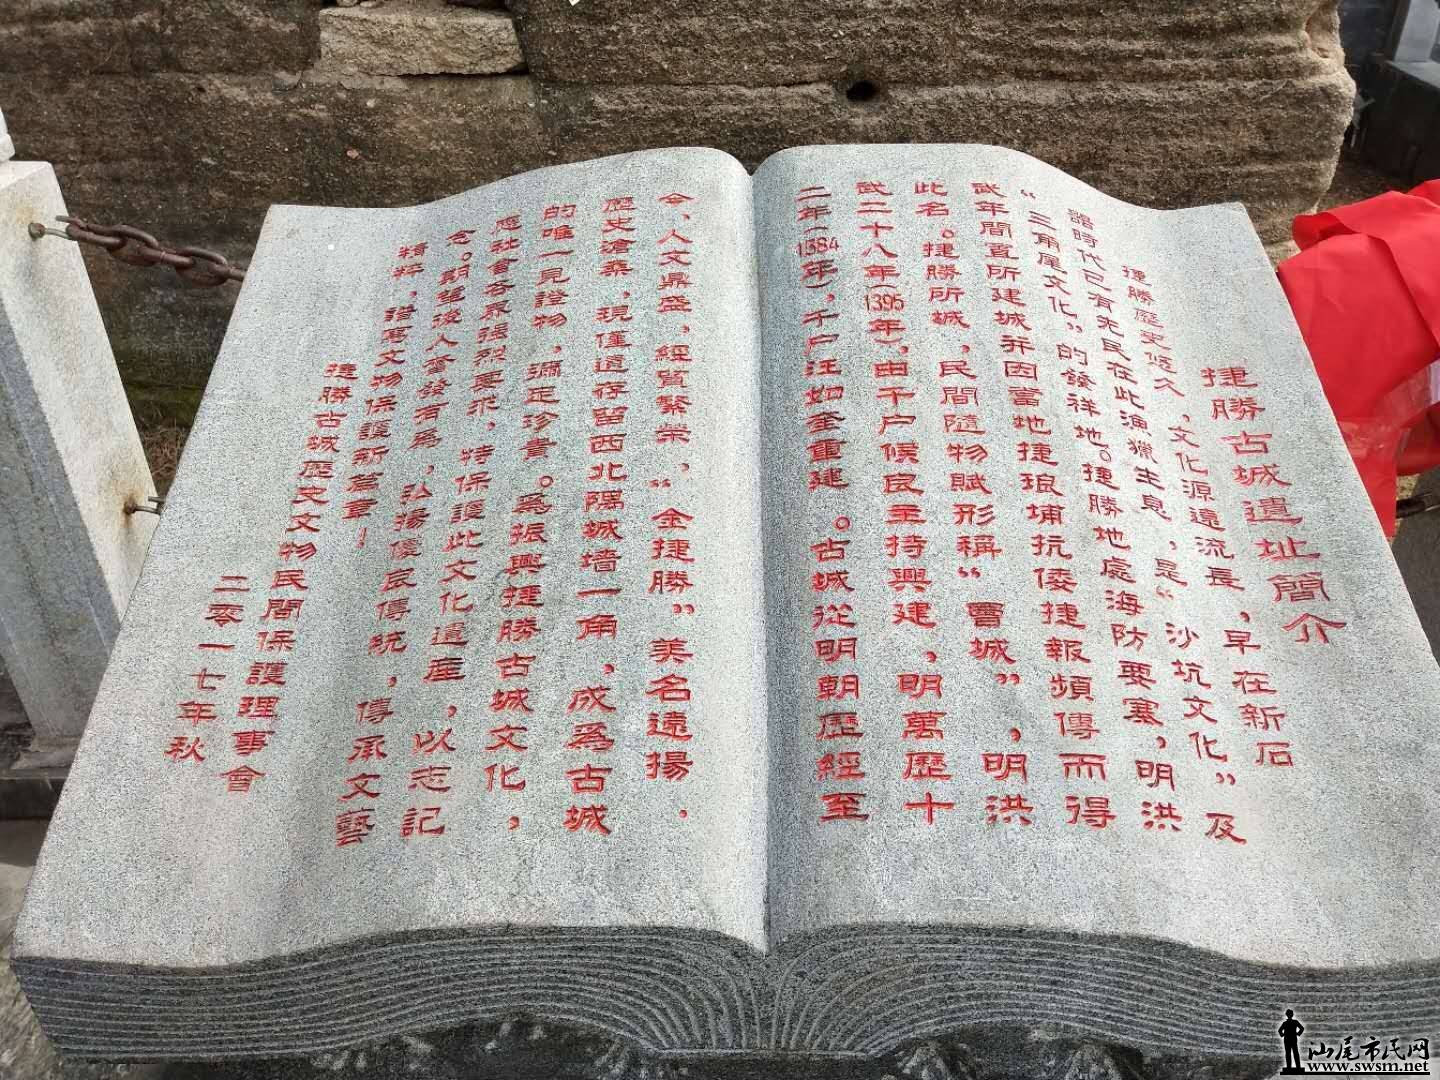 捷勝古城遺址簡介
捷勝歷史悠久，文化源遠流長，早在新石
器時代已有先民在此漁獵生息，是“沙坑文化”及
“三角尾文化”的發祥地。捷勝地處海防要塞，明洪
武年間置所建城并因當地捷琅埔抗倭捷報頻傳而得
此名。捷勝所城，民間隨物賦形稱“賣城”，明洪
武二十八年(1395年)，由千户候良主持興建，明萬歷十
二年(1384年)，千户汪如奎重建。古城從明朝歷經至
今，人文鼎盛，經貿繁榮，“金捷勝”美名遠揚．
歷史滄桑，現僅遺存留西北隅城墙一角，成為古城
的唯一見證物，彌足珍貴。為振興捷勝古城文化，
應社會各界强烈要求，特保護此文化遺産，以志記
念。期望後人奮發有為，弘揚優良傳統，傳承文藝
精粹，譜寫文物保護新篇章！
捷勝古城歷史文物民間保護理事會
二零一七年秋
汕尾市民网
www.swsm.net